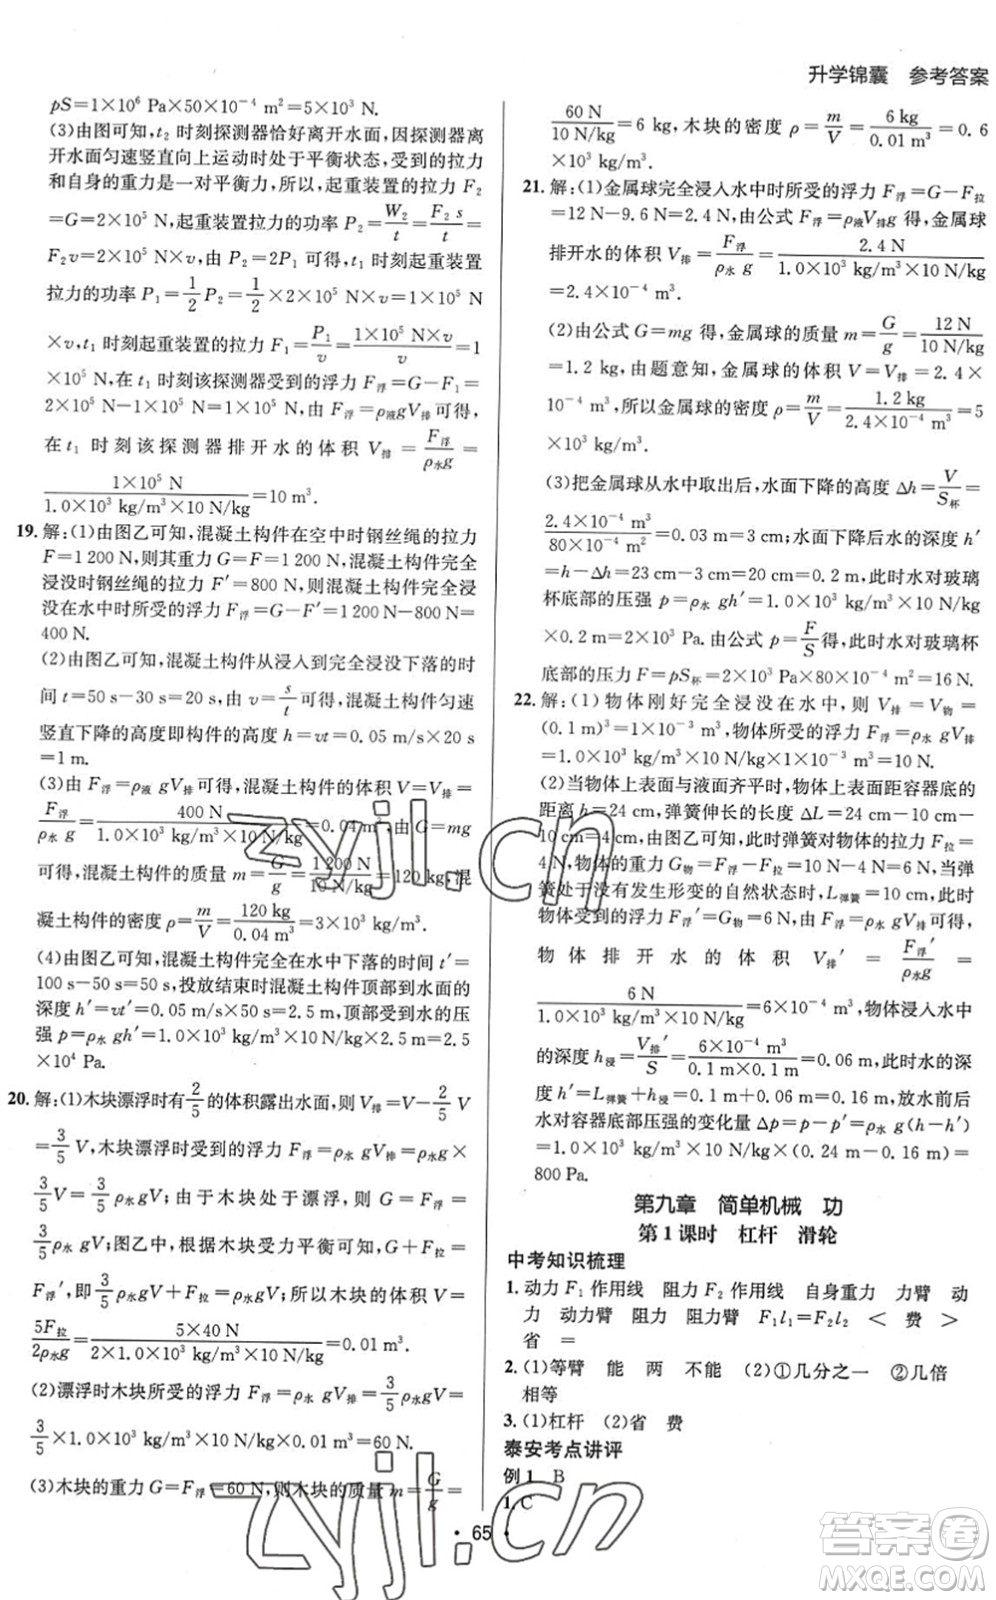 升学锦囊 参考答案
pS=1×10⁶ Pa×50×10⁻⁴ m²=5×10³ N.
(3)由图可知,t₂ 时刻探测器恰好离开水面,因探测器离
开水面匀速竖直向上运动时处于平衡状态,受到的拉力
和自身的重力是一对平衡力,所以,起重装置的拉力 F₂
=G=2×10⁵ N,起重装置拉力的功率 P₂=W₂/t=F₂s/t=
F₂v=2×10⁵ N×v,由 P₂=2P₁ 可得,t₁ 时刻起重装置
拉力的功率 P₁=1/2 P₂=1/2×2×10⁵ N×v=1×10⁵ N
×v,t₁ 时刻起重装置的拉力 F₁=P₁/v=1×10⁵ N×v/v=1
×10⁵ N,在 t₁ 时刻该探测器受到的浮力 F浮=G-F₁=
2×10⁵ N-1×10⁵ N=1×10⁵ N,由 F浮=ρ液gV排可得,
在 t₁ 时刻该探测器排开水的体积 V排=F浮/ρ水g=
1×10⁵ N/1.0×10³ kg/m³×10 N/kg=10 m³.
19. 解:(1)由图乙可知,混凝土构件在空中时钢丝绳的拉力
F=1 200 N,则其重力 G=F=1 200 N,混凝土构件完全
浸没时钢丝绳的拉力 F′=800 N,则混凝土构件完全浸
没在水中时所受的浮力 F浮=G-F′=1 200 N-800 N=
400 N.
(2)由图乙可知,混凝土构件从浸入到完全浸没下落的时
间 t=50 s-30 s=20 s,由 v=s/t可得,混凝土构件匀速
竖直下降的高度即构件的高度 h=vt=0.05 m/s×20 s
=1 m.
(3)由 F浮=ρ液 gV排可得,混凝土构件的体积 V=V排=
F浮/ρ水 g=400 N/1.0×10³ kg/m³×10 N/kg=0.04 m³,由 G=mg
可得,混凝土构件的质量 m=G/g=1 200 N/10 N/kg=120 kg,混
凝土构件的密度 ρ=m/V=120 kg/0.04 m³=3×10³ kg/m³.
(4)由图乙可知,混凝土构件完全在水中下落的时间 t′=
100 s-50 s=50 s,投放结束时混凝土构件顶部到水面的
深度 h′=vt′=0.05 m/s×50 s=2.5 m,顶部受水的压
强 p=ρ水 gh′=1.0×10³ kg/m³×10 N/kg×2.5 m=2.5
×10⁴ Pa.
20. 解:(1)木块漂浮时有2/5的体积露出水面,则 V排=V-2/5 V
=3/5 V,木块漂浮时受到的浮力 F浮=ρ水 gV排=ρ水 g×
3/5 V=3/5 ρ水 gV;由于木块处于漂浮,则有 G=F浮=
3/5 ρ水 gV;图乙中,根据木块受力平衡可得,G+F拉=
F浮′,即3/5 ρ水 gV+F拉=ρ水 gV;所以木块的体积 V=
5F拉/2ρ水g=5×40 N/2×1.0×10³ kg/m³×10 N/kg=0.01 m³.
(2)漂浮时木块所受的浮力 F浮=ρ水 gV排=3/5 ρ水gV=
3/5×1.0×10³ kg/m³×10 N/kg×0.01 m³=60 N.
(3)木块的重力 G=F浮=60 N,则木块的质量 m=G/g=
60 N/10 N/kg=6 kg,木块的密度 ρ=m/V=6 kg/0.01 m³=0.6
×10³ kg/m³.
21. 解:(1)金属球完全浸入水中时所受的浮力 F浮=G-F拉
=12 N-9.6 N=2.4 N,由公式 F浮=ρ液V排g 得,金属球
排开水的体积 V排=F浮/ρ水 g=2.4 N/1.0×10³ kg/m³×10 N/kg
=2.4×10⁻⁴ m³.
(2)由公式 G=mg 得,金属球的质量 m=G/g=12 N/10 N/kg
=1.2 kg,由题意知,金属球的体积 V=V排=2.4×
10⁻⁴ m³,所以金属球的密度 ρ=m/V=1.2 kg/2.4×10⁻⁴ m³=5
×10³ kg/m³.
(3)把金属球从水中取出后,水面下降的高度 Δh=V/S杯=
2.4×10⁻⁴ m³/80×10⁻⁴ m²=0.03 m=3 cm,水面下降后水的深度 h′
=h-Δh=23 cm-3 cm=20 cm=0.2 m,此时水对玻璃
杯底部的压强 p=ρ水 gh′=1.0×10³ kg/m³×10 N/kg
×0.2 m=2×10³ Pa.由公式 p=F/S得,此时水对玻璃杯
底部的压力 F=pS杯=2×10³ Pa×80×10⁻⁴ m²=16 N.
22. 解:(1)物体刚好完全浸没在水中,则 V排=V物=
(0.1 m)³=1×10⁻³ m³,物体所受的浮力 F浮=ρ水 gV排
=1.0×10³ kg/m³×10 N/kg×1×10⁻³ m³=10 N.
(2)当物体上表面与液面齐平时,物体上表面距容器底的
距离 h=24 cm,弹簧伸长的长度 ΔL=24 cm-10 cm-
10 cm=4 cm,由图乙可知,此时弹簧对物体的拉力 F拉=
4 N,物体的重力 G物=F浮-F拉=10 N-4 N=6 N,当弹
簧处于没有发生形变的自然状态时,L弹簧=10 cm,此时
物体受到的浮力 F浮′=G物=6 N,由 F浮=ρ水 gV排可得,
物体排开水的体积 V排′=F浮′/ρ水g=
6 N/1.0×10³ kg/m³×10 N/kg=6×10⁻⁴ m³,物体浸入水中
的深度 h浸=V排′/S=6×10⁻⁴ m³/(0.1 m)²=0.06 m,此时水的深
度 h′=L弹簧+h浸=0.1 m+0.06 m=0.16 m,放水前后
水对容器底部压强的变化量 Δp=p-p′=ρ水 g(h-h′)=
1.0×10³ kg/m³×10 N/kg×(0.24 m-0.16 m)=
800 Pa.
第九章 简单机械 功
第1课时 杠杆 滑轮
中考知识梳理
1. 动力 F₁ 作用线 阻力 F₂ 作用线 自身重力 力臂 动
力 动力臂 阻力 阻力臂 F₁l₁=F₂l₂ < 费 >
省 =
2. (1)等臂 能 两 不能 (2)①几分之一 ②几倍
相等
3. (1)杠杆 (2)省 费
泰安考点讲评
例1 B
1. C
· 65 ·
zyjl.cn
zyjl.cn
答案圈
MXQE.COM